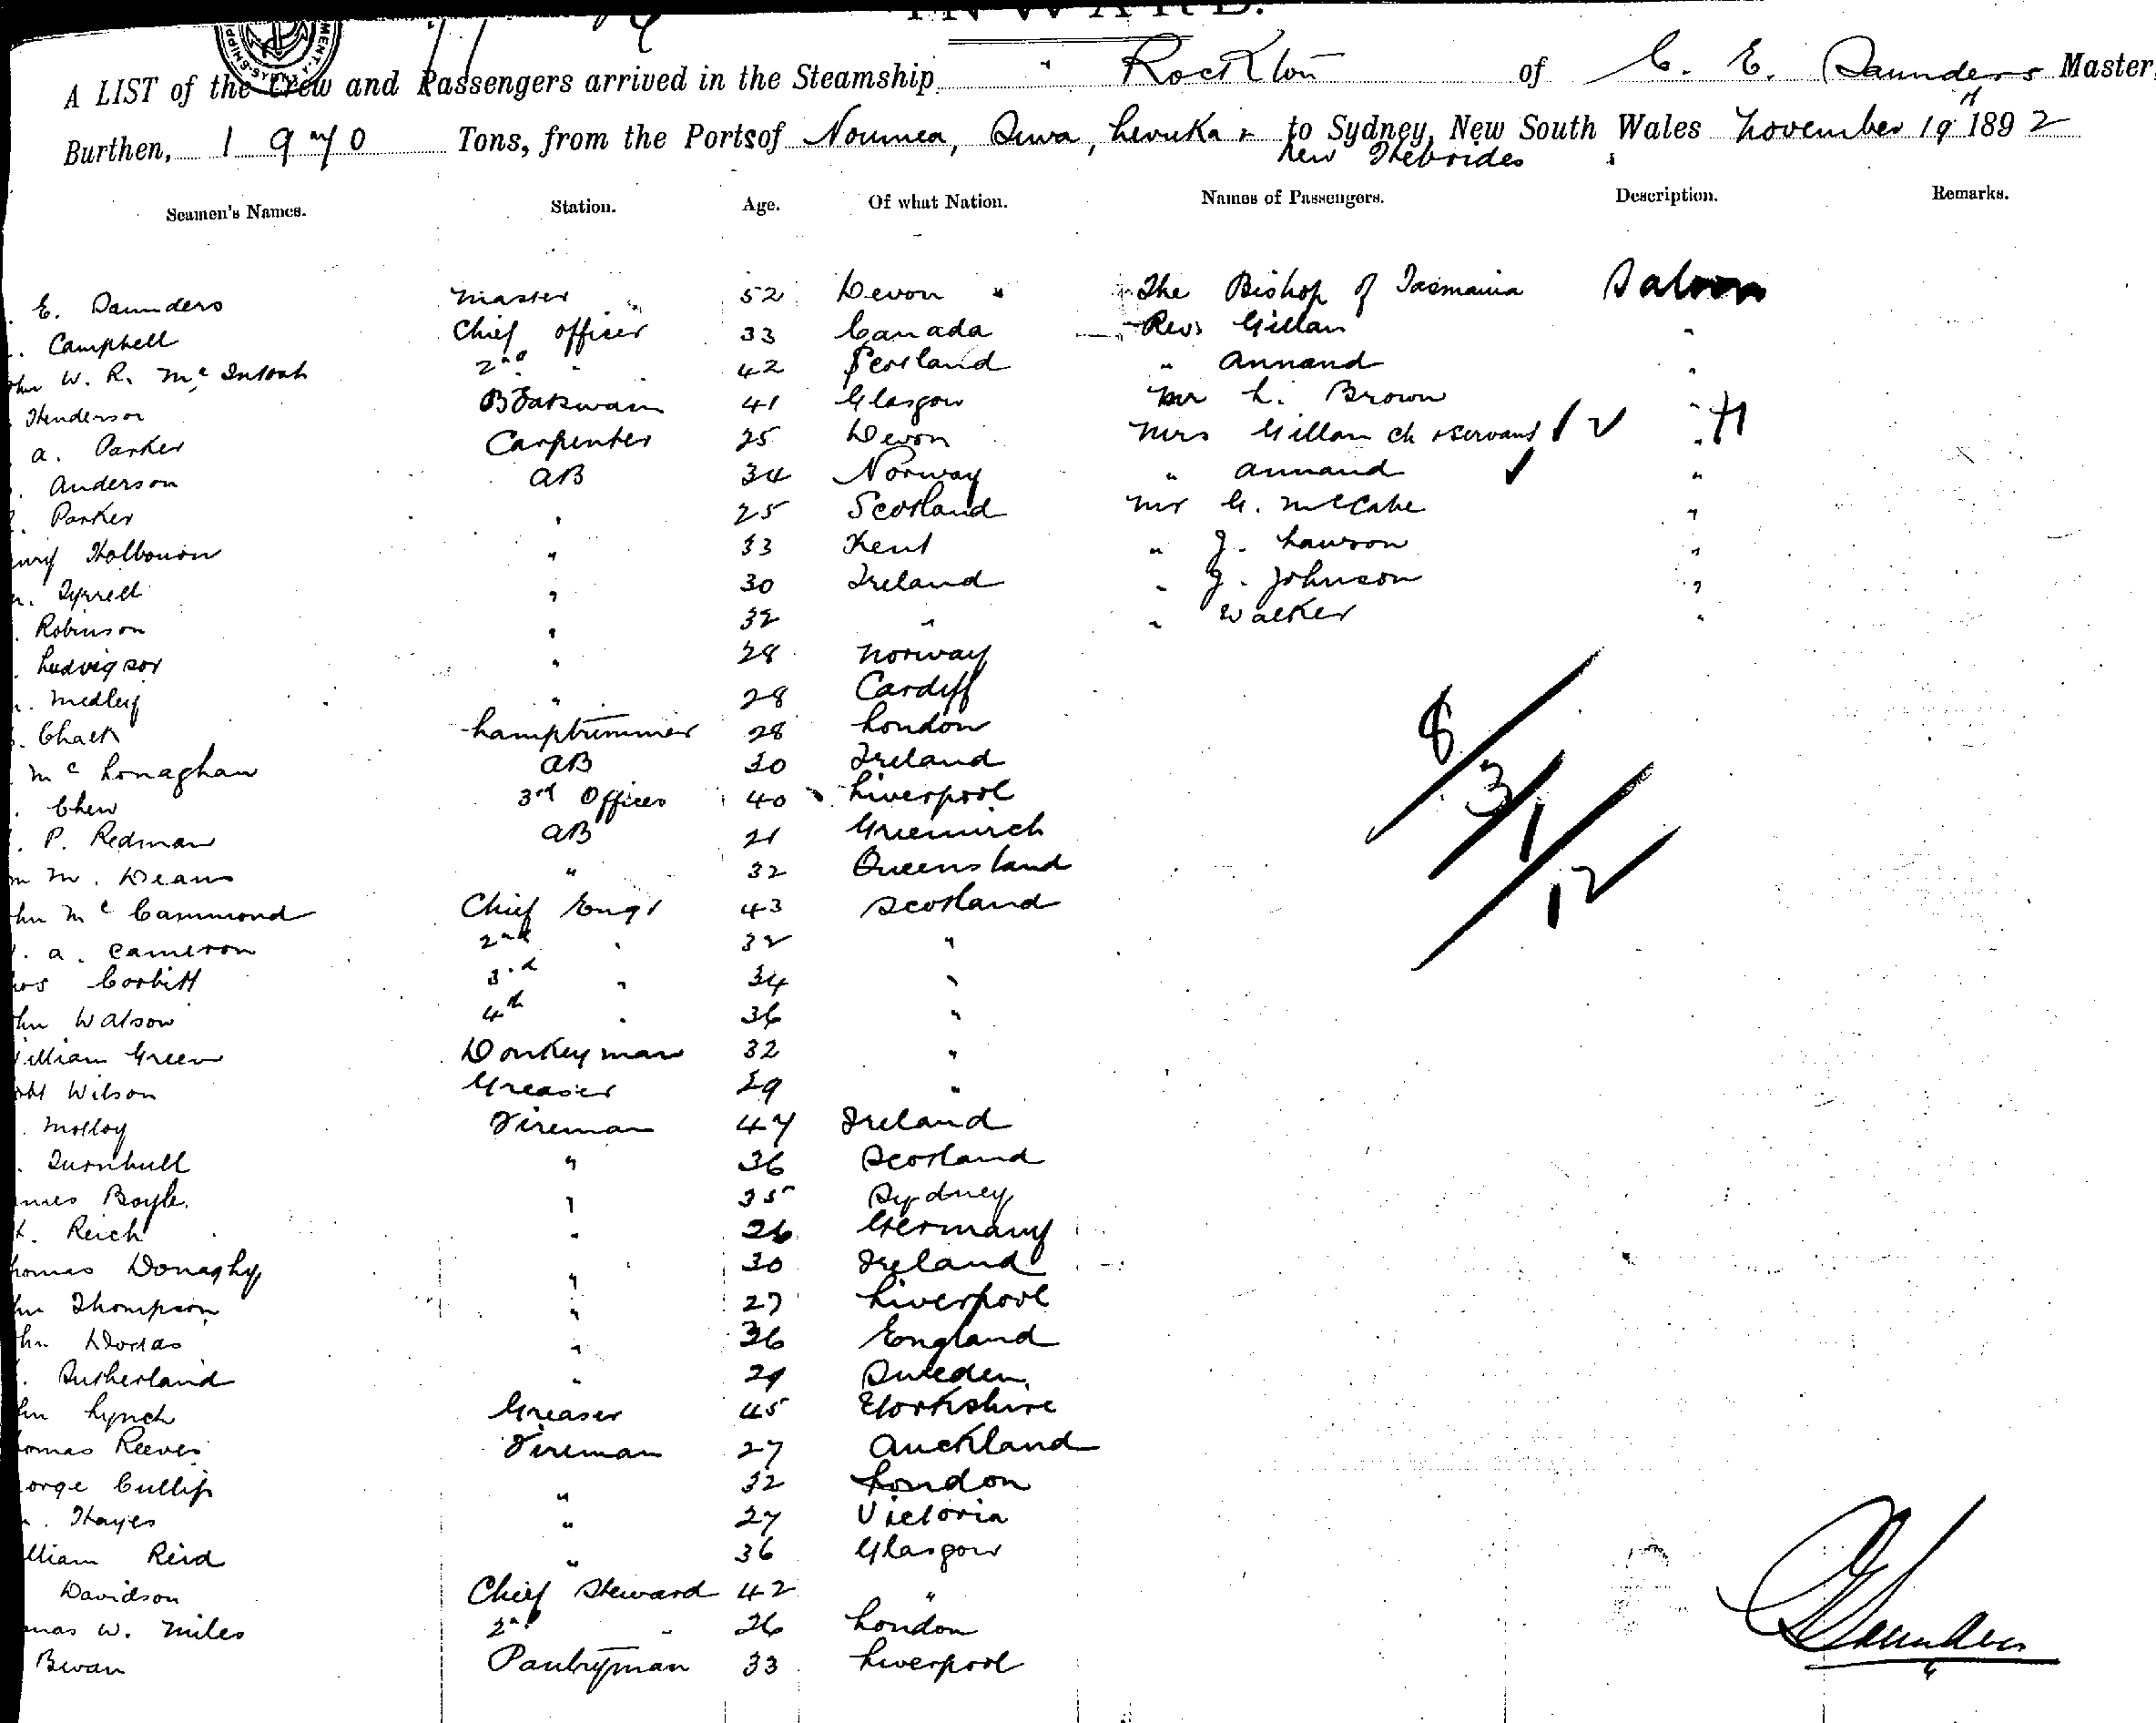 INWARD.
A LIST of the Crew and Passengers arrived in the Steamship " Rockton of C. E. Saunders Master,
Burthen, 1970 Tons, from the Ports of Noumea, Suva, Levuka & New Hebrides to Sydney, New South Wales November 19th 1892
Seamen's Names. Station. Age. Of what Nation. Names of Passengers. Description. Remarks.
E. Saunders Master 52 Devon The Bishop of Tasmania Saloon
Campbell Chief Officer 33 Canada Revs Gillan "
W. R. McIntosh 2nd " 42 Scotland " Annand "
Henderson Boatswain 41 Glasgow Mr L. Brown "
A. Parker Carpenter 25 Devon Mrs Gillan ch & servant 1 2 "
Anderson AB 34 Norway " Annand "
Parker " 25 Scotland Mr G. McCabe "
Holbourn " 33 Kent " J. Lawson "
Tyrrell " 30 Ireland " J. Johnson "
Robinson " 32 " " Walker "
Ludvigson " 28 Norway
Medley " 28 Cardiff
Chalk Lamptrimmer 28 London
McLonaghan AB 30 Ireland
Chew 3rd Officer 40 Liverpool
P. Redman AB 21 Greenwich
M. Deans " 32 Queensland
McCammond Chief Engr 43 Scotland
A. Cameron 2nd " 32 "
Corbitt 3rd " 34 "
Watson 4th " 36 "
William Green Donkeyman 32 "
Wilson Greaser 29 "
Molloy Fireman 47 Ireland
Turnbull " 36 Scotland
James Boyle " 35 Sydney
Reich " 26 Germany
Thomas Donaghy " 30 Ireland
Thompson " 27 Liverpool
" 36 England
Sutherland " 29 Sweden
Lynch Greaser 45 Yorkshire
Thomas Reeves Fireman 27 Auckland
George Cullip " 32 London
Hayes " 27 Victoria
William Reid " 36 Glasgow
Davidson Chief Steward 42 "
W. Miles 2nd " 26 London
Bevan Pantryman 33 Liverpool
8/3/1/12
C E Saunders